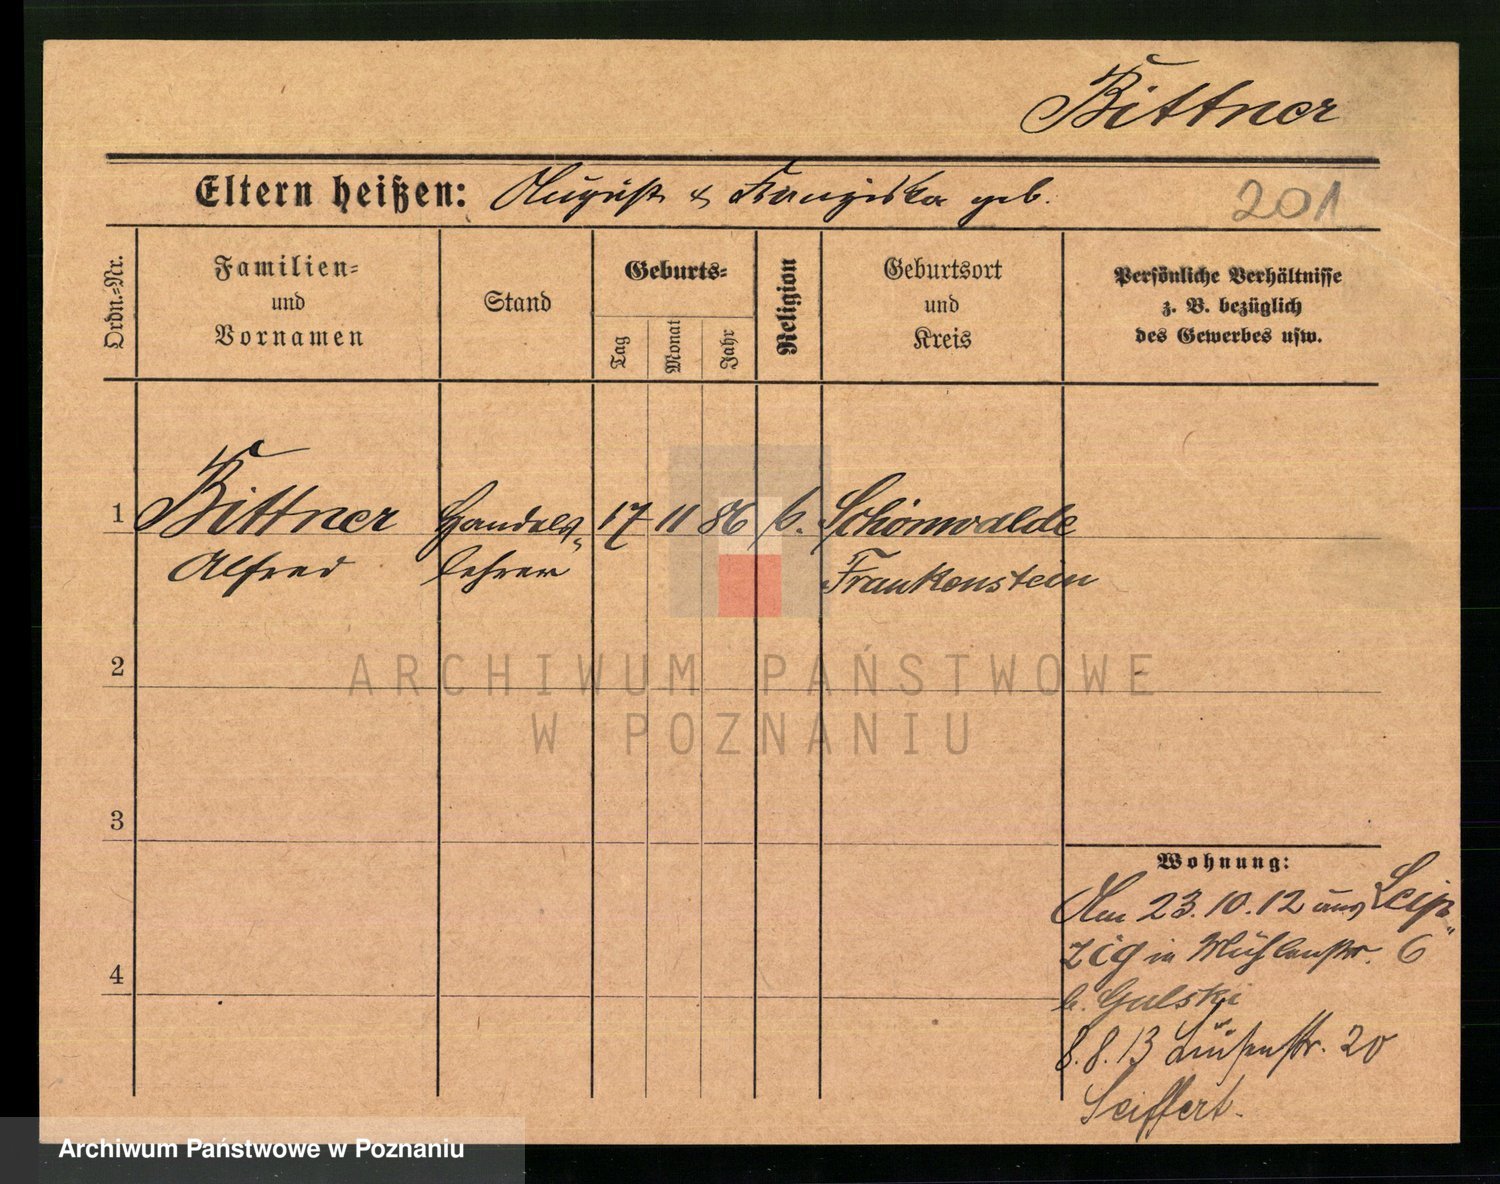 Bittner
Eltern heißen: August & Franziska geb.
201
Ordn.-Nr.
Familien=
und
Vornamen
Stand
Geburts=
Tag
Monat
Jahr
Religion
Geburtsort
und
Kreis
Persönliche Verhältnisse
z. B. bezüglich
des Gewerbes usw.
1 Bittner Handels- 17 11 86 k. Schönwalde
Alfred lehrer Frankenstein
2
ARCHIWUM PAŃSTWOWE
W POZNANIU
3
Wohnung:
Am 23.10.12 aus Leip-
zig in Mühlenstr. 6
4
b. Gulski
8.8.13 Luisenstr. 20
Seiffert.
Archiwum Państwowe w Poznaniu